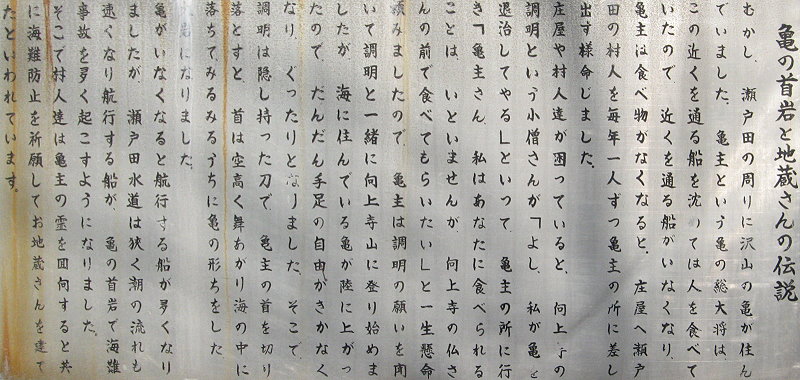 亀の首岩と地蔵さんの伝説
むかし、瀬戸田の周りに沢山の亀が住ん
でいました。亀主という亀の総大将は、
この近くを通る船を沈めては人を食べて
いたので、近くを通る船がいなくなり、
亀主は食べ物がなくなると、庄屋へ瀬戸
田の村人を毎年一人ずつ亀主の所に差し
出す様命じました。
庄屋や村人達が困っていると、向上寺の
調明という小僧さんが「よし、私が亀を
退治してやる」といって、亀主の所に行
き「亀主さん、私はあなたに食べられる
ことは、いといませんが、向上寺の仏さ
んの前で食べてもらいたい」と一生懸命
頼みましたので、亀主は調明の願いを聞
いて調明と一緒に向上寺山に登り始めま
したが、海に住んでいる亀が陸に上がっ
たので、だんだん手足の自由がきかなく
なり、ぐったりとなりました。そこで、
調明は隠し持った刀で、亀主の首を切り
落とすと、首は空高く舞あがり海の中に
落ちてみるみるうちに亀の形ちをした
になりました。
亀がいなくなると航行する船が多くなり
ましたが、瀬戸田水道は狭く潮の流れも
速くなり航行する船が、亀の首岩で海難
事故を多く起こすようになりました。
そこで村人達は亀主の霊を回向すると共
に海難防止を祈願してお地蔵さんを建て
たといわれています。